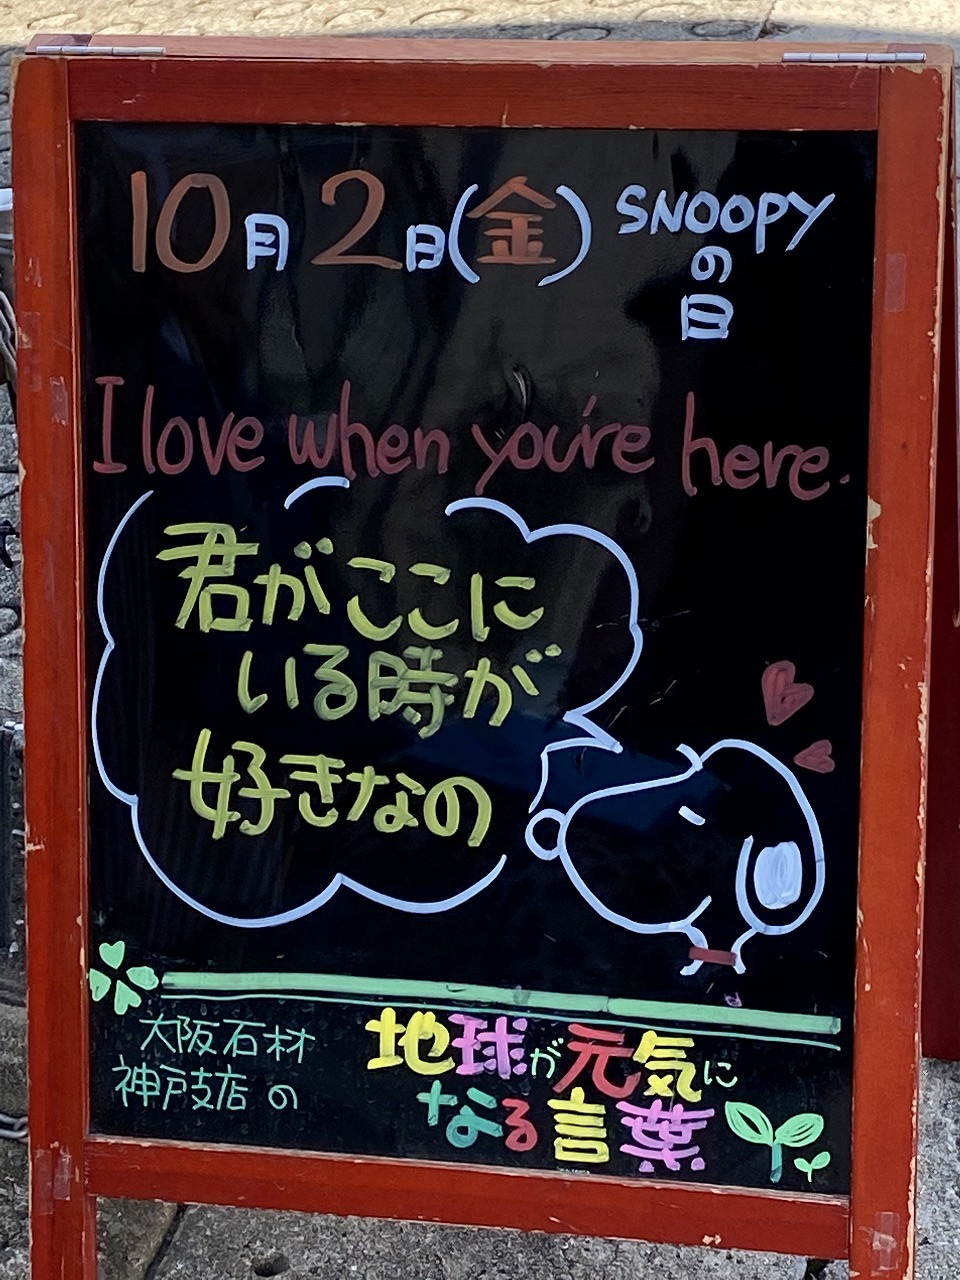 10月2日(金) SNOOPY
の
日
I love when you're here.
君がここに
いる時が
好きなの
大阪石材
神戸支店 の
地球が元気に
なる言葉